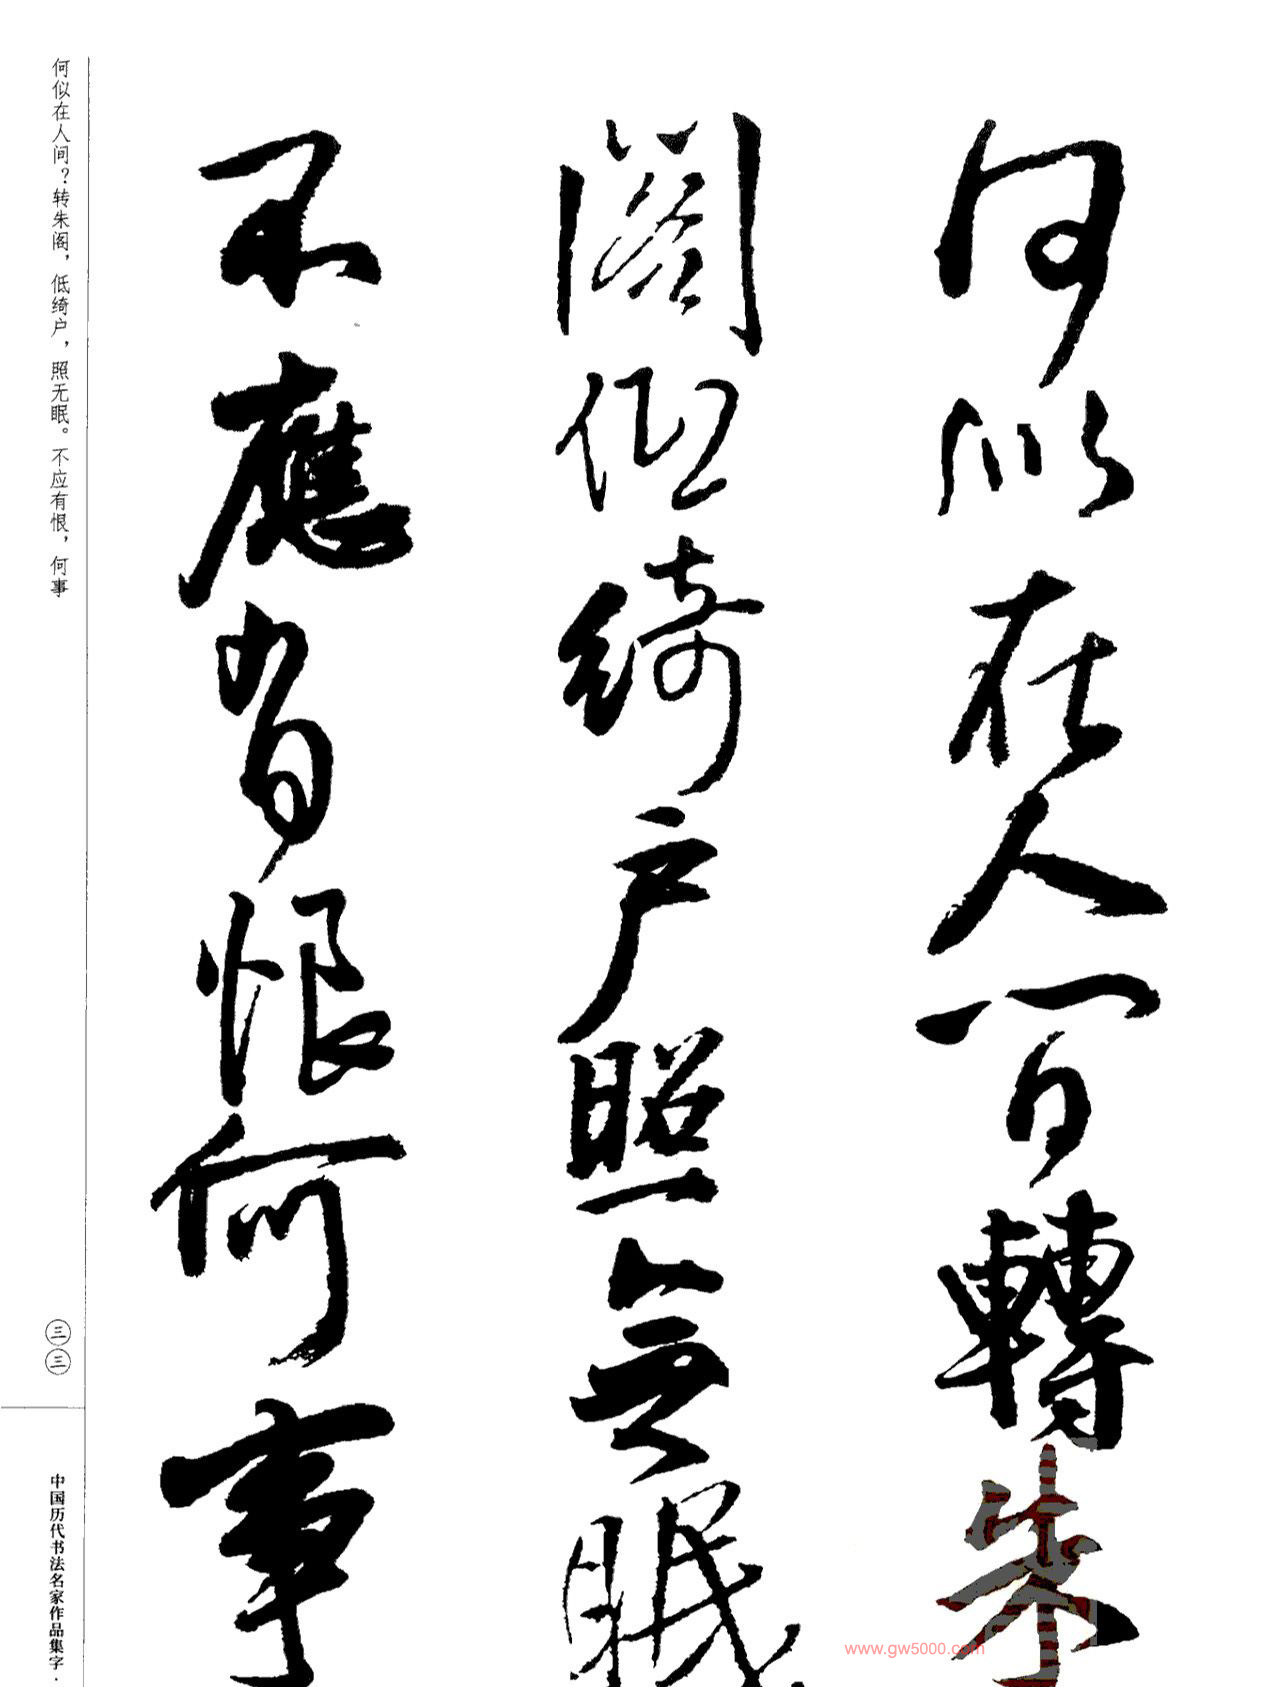 何似在人間轉朱
閣低綺户照無眠
不應有恨何事
何似在人间？转朱阁，低绮户，照无眠。不应有恨，何事
三三
中国历代书法名家作品集字·
www.gw5000.com